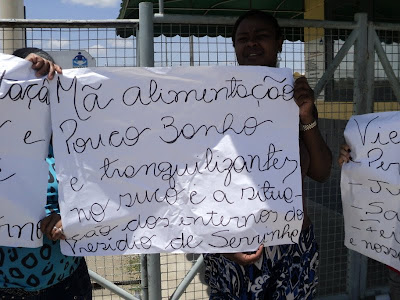 açá
e
rno
Mã alimentação
Pouco Banho
e tranquilizantes
no suco e a situa-
ção dos internos do
Presidio de Serrinha
Vie
Per
- Ju
Sa
e noss